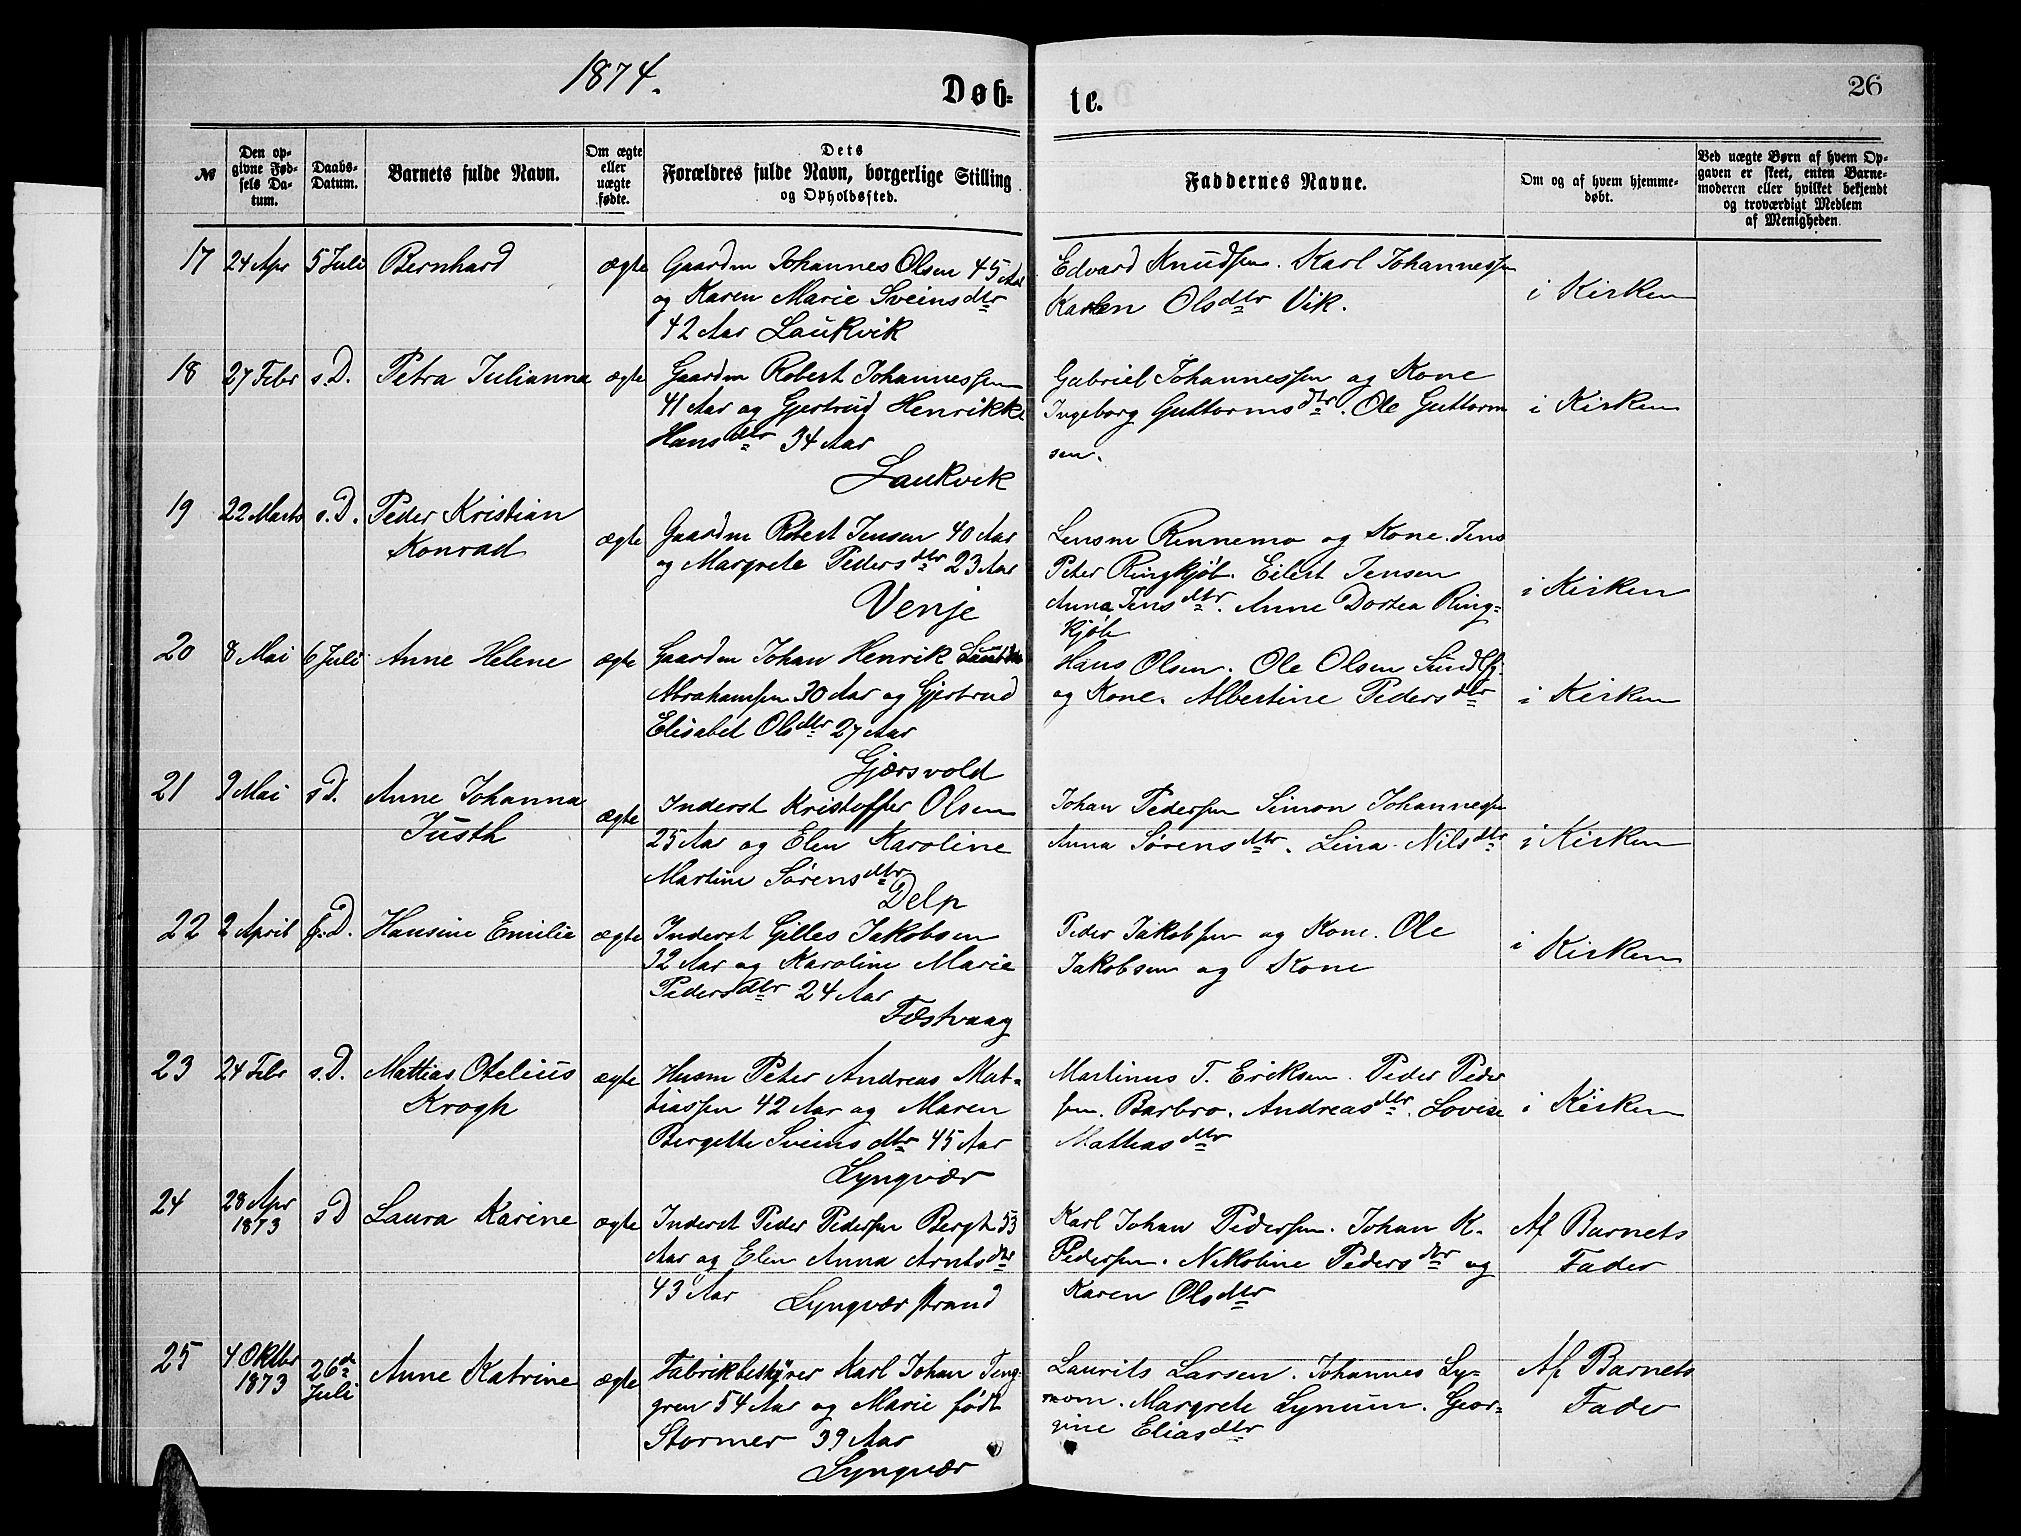 1874.
Døb-
te.
26
№
Den op-
givne Fød-
sels Da-
tum.
Daabs-
Datum.
Barnets fulde Navn.
Om ægte
eller
uægte
fødte.
Dets
Forældres fulde Navn, borgerlige Stilling
og Opholdssted.
Faddernes Navne.
Om og af hvem hjemme-
døbt.
Ved uægte Børn af hvem Op-
gaven er skeet, enten Barne-
moderen eller hvilket bekjendt
og troværdigt Medlem
af Menigheden.
17 24 Apr 5 Juli Bernhard ægte Gaardm Johannes Olsen 45 Aar
og Karen Marie Sveinsdtr
42 Aar Laukvik
Edvard Knudsen. Karl Johannessen
Karen Olsdtr Vik.
i Kirken
18 27 Febr s.D. Petra Julianna ægte Gaardm Robert Johannessen
41 Aar og Gjertrud Henrikke
Hansdtr 34 Aar
Laukvik
Gabriel Johannessen og Kone
Ingeborg Guttormsdtr. Ole Guttorm
sen.
i Kirken
19 22 Marts s.D. Peder Kristian
Konrad
ægte Gaardm Robert Jensen 40 Aar
og Margrete Pedersdtr 23 Aar
Venje
Lensm Rennemo og Kone. Jens
Peter Ringkjøb. Eilert Jensen
Anna Jensdtr. Anne Dortea Ring-
kjøb
i Kirken
20 8 Mai 6 Juli Anne Helene ægte Gaardm Johan Henrik
Abrahamsen 30 Aar og Gjertrud
Elisabet Olsdtr 27 Aar
Gjærsvold
Hans Olsen. Ole Olsen
og Kone. Albertine Pedersdtr
i Kirken
21 9 Mai s.D. Anne Johanna
Justh
ægte Inderst Kristoffer Olsen
25 Aar og Elen Karoline
Martine Sørensdtr
Delp
Johan Pedersen Simon Johannessen
Anna Sørensdtr. Lina Nilsdtr
i Kirken
22 2 April s.D. Hansine Emilie ægte Inderst Gilles Jakobsen
32 Aar og Karoline Marie
Pedersdtr 24 Aar
Festvaag
Peder Jakobsen og Kone. Ole
Jakobsen og Kone
i Kirken
23 24 Febr s.D. Mattias Otelius
Krogh
ægte Husm Peter Andreas Mat-
tiassen 42 Aar og Maren
Bergette Sveinsdtr 45 Aar
Lyngvær
Martinus T. Eriksen. Peder Peder
sen. Barbro. Andreasdtr. Lovise
Mathiasdtr
i Kirken
24 28 Apr
1873
s.D Laura Karine ægte Inderst Peder Pedersen Bergh 53
Aar og Elen Anna Arntsdtr
43 Aar Lyngværstrand
Karl Johan Pedersen. Johan K.
Pedersen. Nikoline Pedersdtr og
Karen Olsdtr
Af Barnets
Fader
25 4 Oktbr
1873
26de
Juli
Anne Katrine ægte Fabrikbestyrer Karl Johan Teng-
gren 54 Aar og Marie født
Stormer 39 Aar
Lyngvær
Laurits Larsen. Johannes Ly-
mom. Margrete Lynum. Geor-
gine Eliasdtr
Af Barnets
Fader